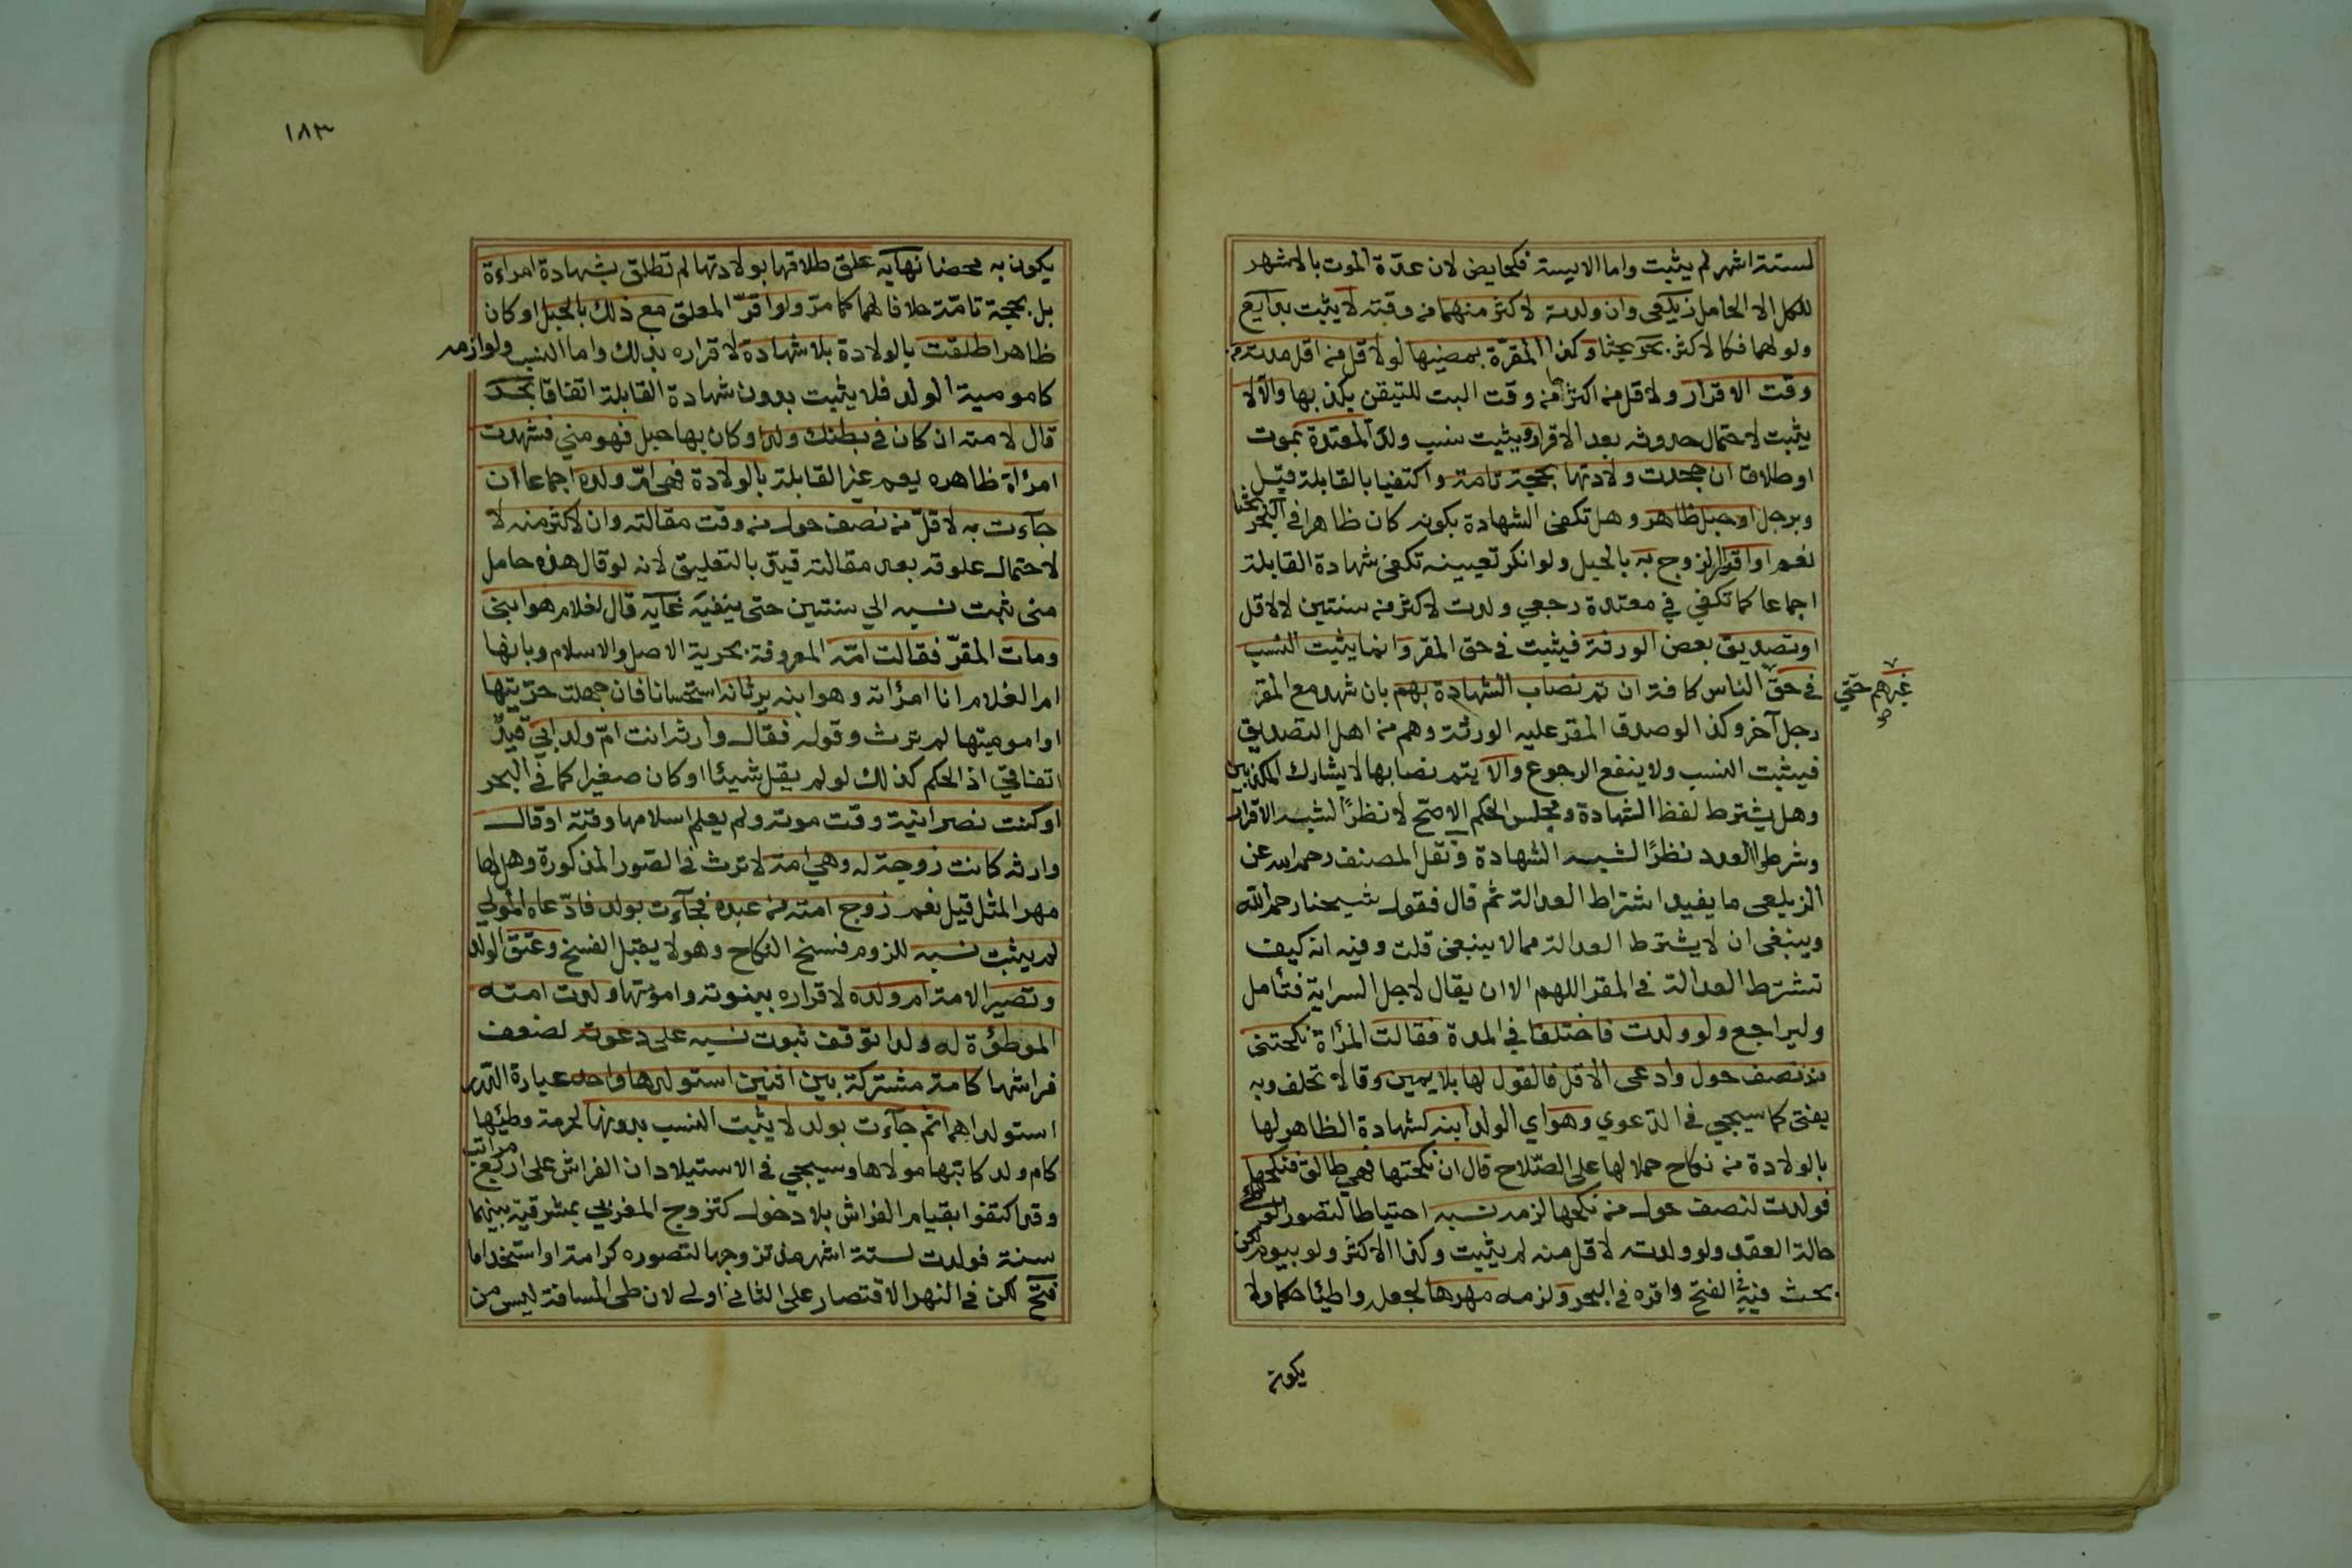 لستة اشهر لم يثبت واما الايسة فكحايض لان عدة الموت بالاشهر
للكل الا الحامل زيلعي وان ولدته لاكثر منهما من وقته لا يثبت بدايع
ولو لهما فكالاكثر بحر بحثا وكذا المقرة بمضيها لو لاقل من اقل مدته من
وقت الاقرار ولاقل من اكثرها من وقت البت للتيقن بكذبها والا لا
يثبت لاحتمال حدوثه بعد الاقرار ويثبت نسب ولد المعتدة بموت
او طلاق ان جحدت ولادتها بحجة تامة واكتفيا بالقابلة قيل
وبرجل او حبل ظاهر وهل تكفي الشهادة بكونه كان ظاهرا في البحر بحثا
نعم او اقرار الزوج به بالحبل ولو انكر تعيينه تكفي شهادة القابلة
اجماعا كما تكفي في معتدة رجعي ولدت لاكثر من سنتين لا لاقل
او تصديق بعض الورثة فيثبت في حق المقر وانما يثبت النسب
في حق الناس كافة ان تم نصاب الشهادة بهم بان شهد مع المقر
غيرهم حتي
صح
رجل آخر وكذا لو صدق المقر عليه الورثة وهم من اهل التصديق
فيثبت النسب ولا ينفع الرجوع والا يتم نصابها لا يشارك المكذبين
وهل يشترط لفظ الشهادة ومجلس الحكم الاصح لا نظرًا لشبه الاقرار
وشرطوا العدد نظرًا لشبه الشهادة ونقل المصنف رحمه الله عن
الزيلعي ما يفيد اشتراط العدالة ثم قال فقول شيخنا رحمه الله
وينبغي ان لا يشترط العدالة مما لا ينبغي قلت وفيه انه كيف
تشترط العدالة في المقر اللهم الا ان يقال لاجل السراية فتأمل
وليراجع ولو ولدت فاختلفا في المدة فقالت المرأة نكحتني
منذ نصف حول وادعى الاقل فالقول لها بلا يمين وقالا تحلف وبه
يفتى كما سيجي في الدعوي وهو اي الولد ابنه لشهادة الظاهر لها
بالولادة من نكاح حملا لها على الصلاح قال ان نكحتها فهي طالق فنكحها
فولدت لنصف حول من نكحها لزمه نسبه احتياطا لتصور الوطئ
حالة العقد ولو ولدته لاقل منه لم يثبت وكذا الاكثر ولو بيوم لكن
بحث فيه في الفتح واقره في البحر ولزمه مهرها لجعله واطئا حكما ولا
يكون
١٨٣
يكون به محصنا نهاية علق طلاقها بولادتها لم تطلق بشهادة امراءة
بل بحجة تامة خلافا لهما كما مر ولو اقر المعلق مع ذلك بالحبل او كان
ظاهرا طلقت بالولادة بلا شهادة لاقراره بذلك واما النسب ولوازمه
كامومية الولد فلا يثبت بدون شهادة القابلة اتفاقا بحر
قال لامته ان كان في بطنك ولد او كان بها حبل فهو مني فشهدت
امرأة ظاهره يعم غير القابلة بالولادة فهي ام ولده اجماعا ان
جآءت به لاقل من نصف حول من وقت مقالته وان لاكثر منه لا
لاحتمال علوقه بعد مقالته قيد بالتعليق لانه لو قال هذه حامل
مني ثبت نسبه الي سنتين حتى ينفيه غاية قال لغلام هو ابني
ومات المقر فقالت امه المعروفة بحرية الاصل والاسلام وبانها
ام الغلام انا امرأته وهو ابنه يرثانه استحسانا فان جهلت حريتها
او امومتها لم ترث وقوله فقال وارثه انت ام ولد ابي قيد
اتفاقي اذ الحكم كذلك لو لم يقل شيئا او كان صغيرا كما في البحر
او كنت نصرانية وقت موته ولم يعلم اسلامها وقته او قال
وارثه كانت زوجة له وهي امة لا ترث في الصور المذكورة وهل لها
مهر المثل قيل نعم زوج امته من عبده فجآءت بولد فادعاه المولي
لم يثبت نسبه للزوم فسخ النكاح وهو لا يقبل الفسخ وعتق الولد
وتصير الامة ام ولده لاقراره ببنوته وامومتها ولدت امته
الموطؤة له ولدا توقف ثبوت نسبه على دعوته لضعف
فراشها كامة مشتركة بين اثنين استولدها واحد عبارة الدرر
استولداها ثم جآءت بولد لا يثبت النسب بدونها لحرمة وطئها
كام ولد كاتبها مولاها وسيجي في الاستيلاد ان الفراش على اربع مراتب
وقد اكتفوا بقيام الفراش بلا دخول كتزوج المغربي بمشرقية بينهما
سنة فولدت لستة اشهر مذ تزوجها لتصوره كرامة او استخداما
فتح لكن في النهر الاقتصار على الثاني اولى لان طي المسافة ليس من